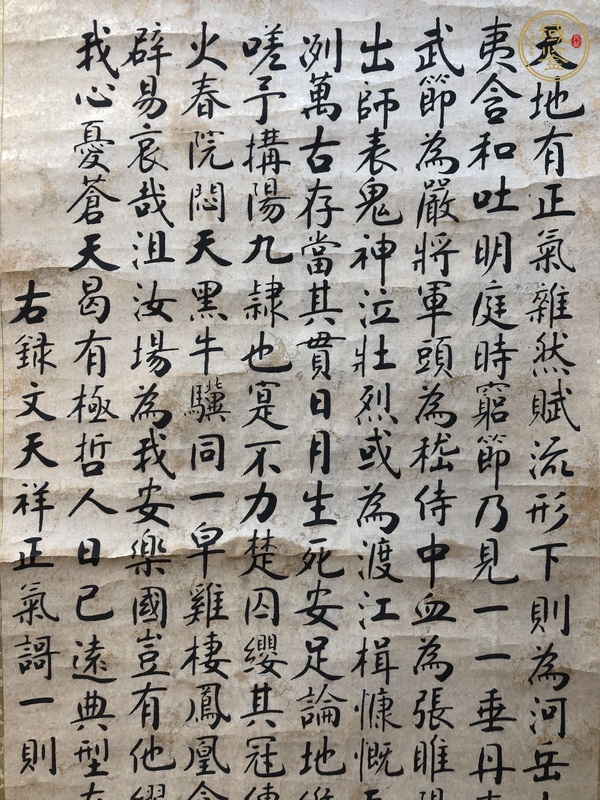 天地有正氣雜然賦流形下則為河岳
夷含和吐明庭時窮節乃見一一垂丹
武節為嚴將軍頭為嵇侍中血為張睢陽
出師表鬼神泣壯烈或為渡江楫慷慨
冽萬古存當其貫日月生死安足論地
嗟予搆陽九隸也寔不力楚囚纓其冠傳
火春院悶天黑牛驥同一皁雞棲鳳凰食
辟易哀哉沮汝場為我安樂國豈有他繆
我心憂蒼天曷有極哲人日已遠典型在
右録文天祥正氣謌一則